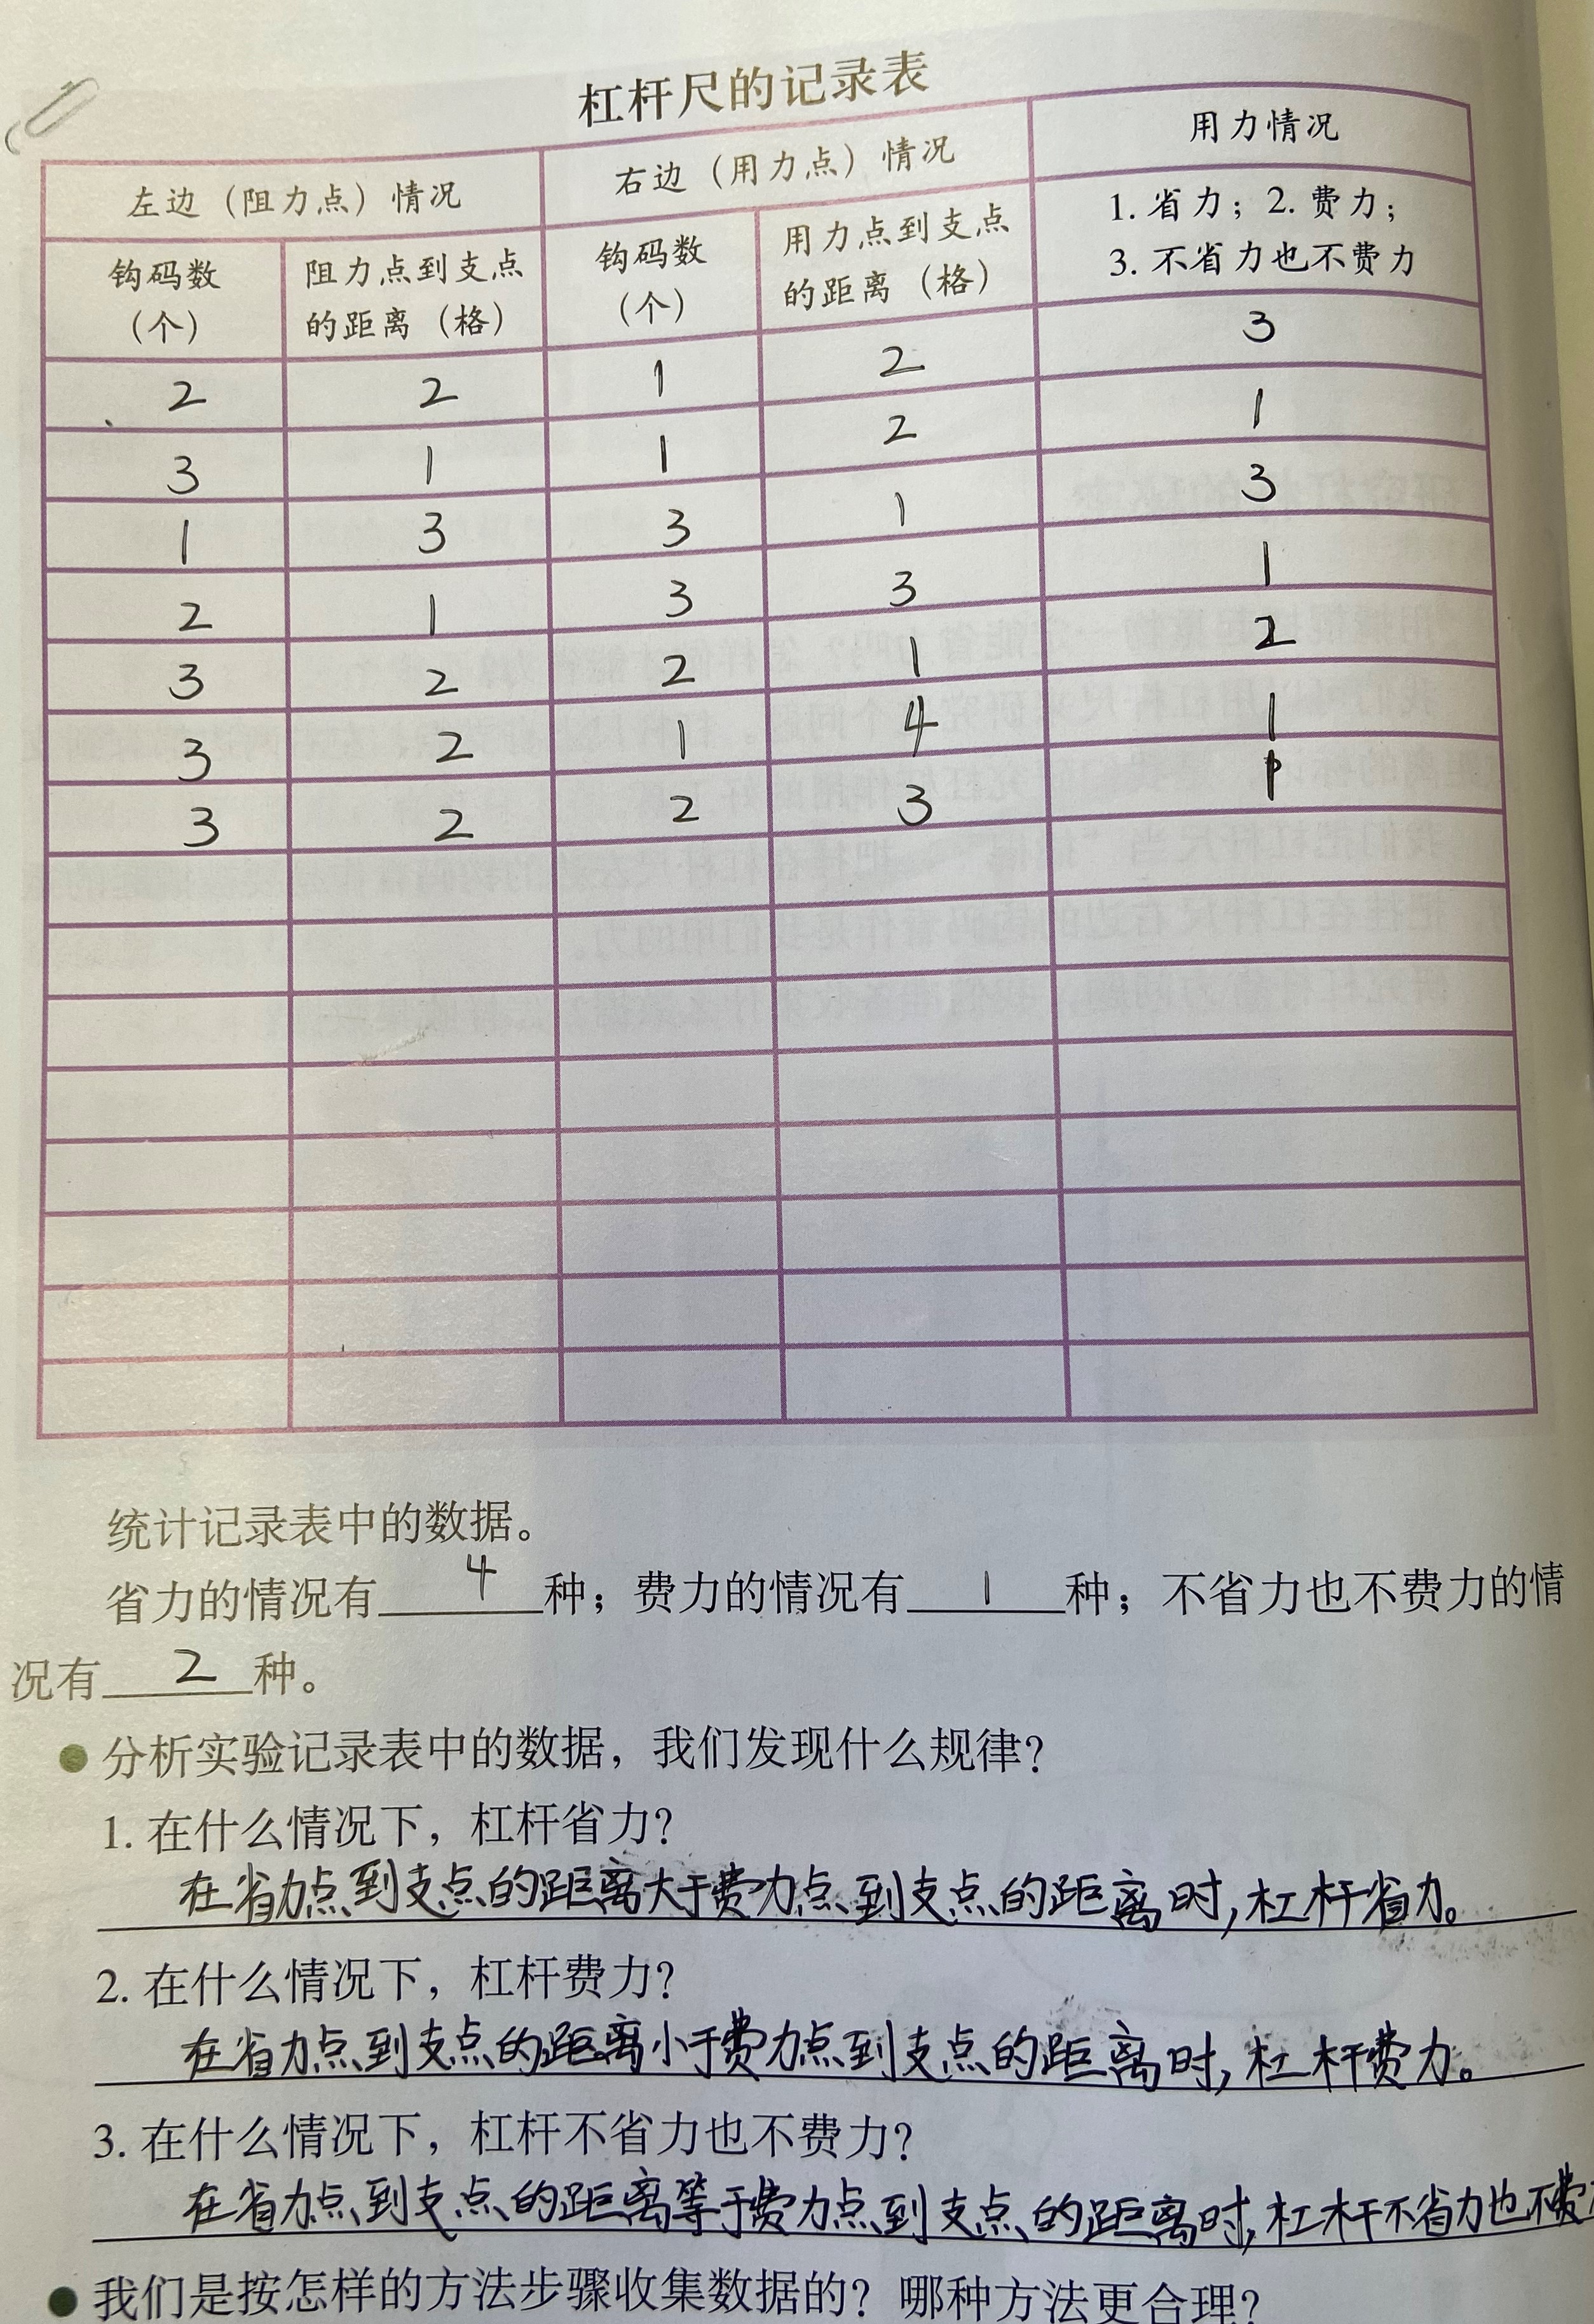 杠杆尺的记录表
左边（阻力点）情况 右边（用力点）情况 用力情况
钩码数（个） 阻力点到支点的距离（格） 钩码数（个） 用力点到支点的距离（格） 1. 省力；2. 费力；3. 不省力也不费力
2 2 1 2 3
3 1 1 2 1
1 3 3 1 3
2 1 3 3 1
3 2 2 1 2
3 2 1 4 1
3 2 2 3 1
统计记录表中的数据。
省力的情况有 4 种；费力的情况有 1 种；不省力也不费力的情
况有 2 种。
分析实验记录表中的数据，我们发现什么规律？
1. 在什么情况下，杠杆省力？
在省力点到支点的距离大于费力点到支点的距离时，杠杆省力。
2. 在什么情况下，杠杆费力？
在省力点到支点的距离小于费力点到支点的距离时，杠杆费力。
3. 在什么情况下，杠杆不省力也不费力？
在省力点到支点的距离等于费力点到支点的距离时，杠杆不省力也不费
我们是按怎样的方法步骤收集数据的？哪种方法更合理？